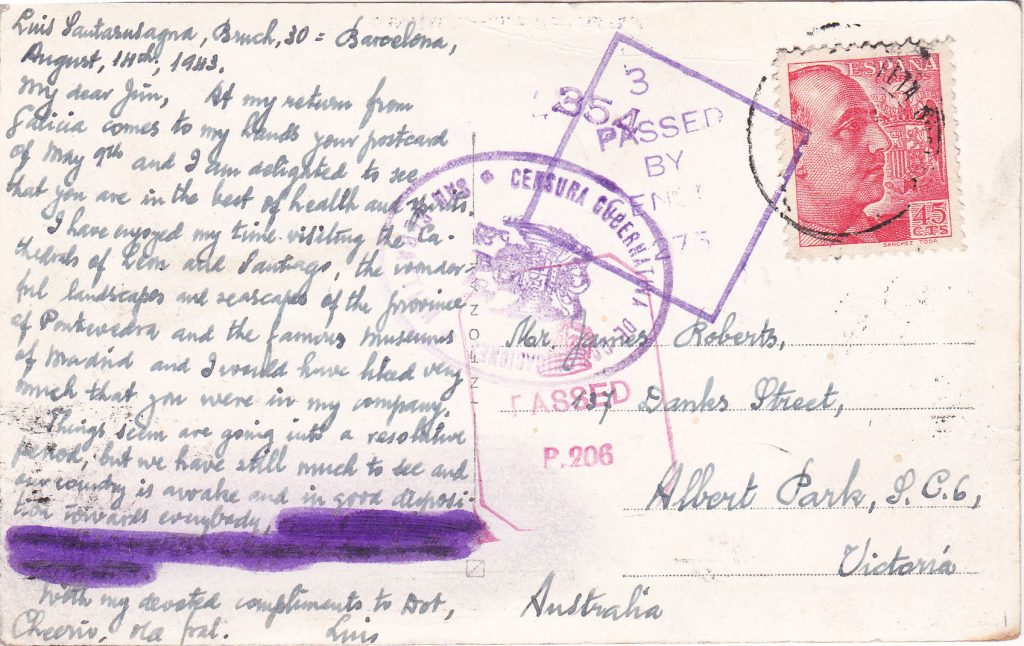 Luis Santasusagna, Bruch, 30 = Barcelona,
August, 14th, 1943.
My dear Jim, At my return from
Galicia comes to my hands your postcard
of May 9th and I am delighted to see
that you are in the best of health and spirits
I have enjoyed my time visiting the Ca-
thedrals of Leon and Santiago, the wonder-
ful landscapes and seascapes of the province
of Pontevedra and the famous Museums
of Madrid and I would have liked very
much that you were in my company.
Things seem are going into a resolutive
period, but we have still much to see and
our country is awake and in good disposi-
tion towards everybody,
With my devoted compliments to Dot,
Cheerio, old pal. Luis
354
3
PASSED
BY
CENSURA GUBERNATIVA DE
PASSED
P.206
ESPAÑA
45
CTS
SANCHEZ TODA
Mr. James Roberts,
137 Danks Street,
Albert Park, S.C.6,
Victoria
Australia